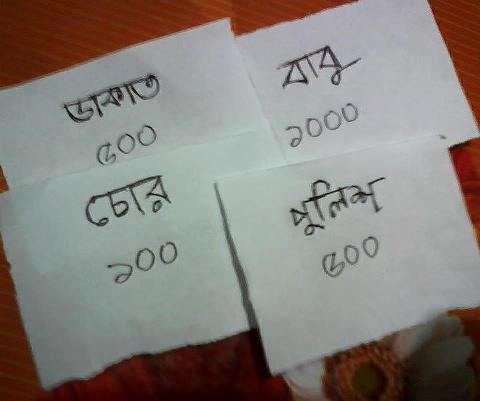 ডাকাত
৫০০
বাবু
১০০০
চোর
১০০
পুলিশ
৫০০